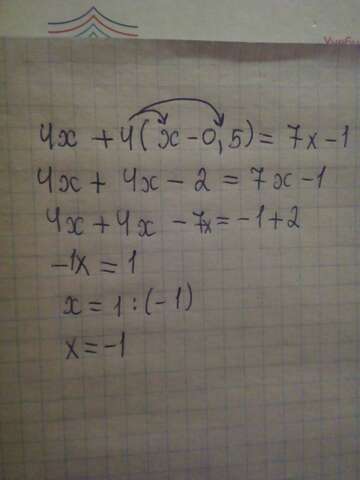 4x + 4(x - 0,5) = 7x - 1
4x + 4x - 2 = 7x - 1
4x + 4x - 7x = -1 + 2
-1x = 1
x = 1 : (-1)
x = -1